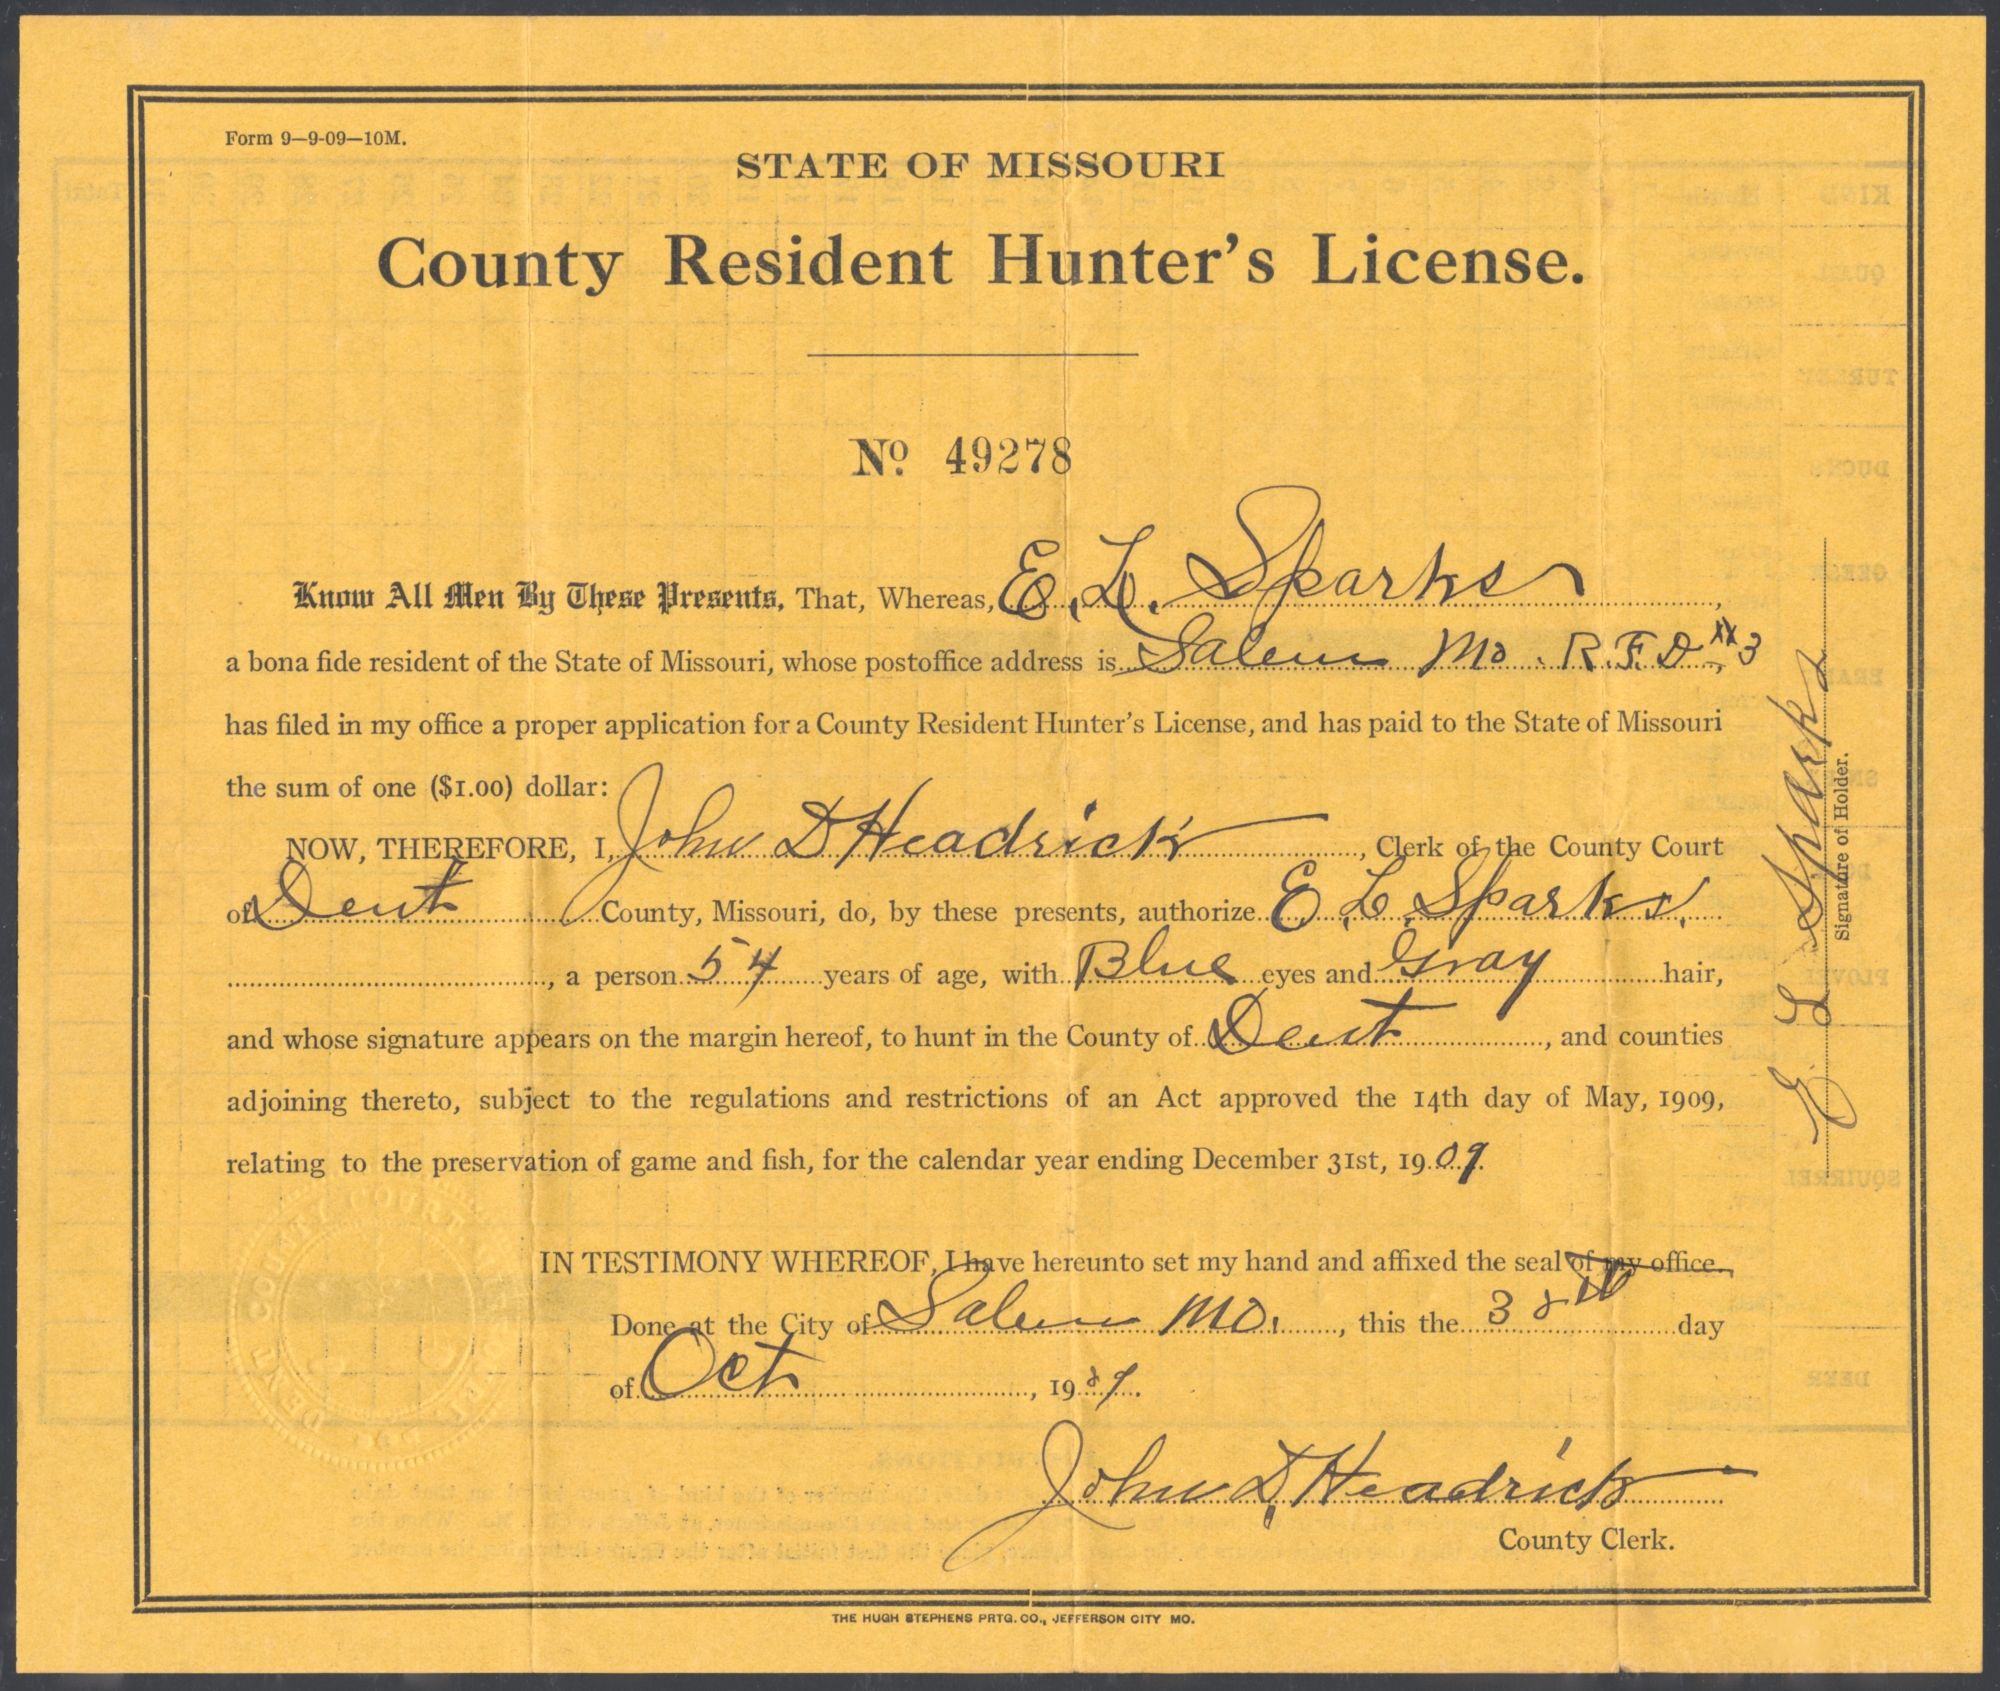 Form 9—9-09—10M.
STATE OF MISSOURI
County Resident Hunter's License.
No. 49278
Know All Men By These Presents, That, Whereas, E. L. Sparks,
a bona fide resident of the State of Missouri, whose postoffice address is Salem Mo. R.F.D. # 3,
has filed in my office a proper application for a County Resident Hunter's License, and has paid to the State of Missouri
the sum of one ($1.00) dollar:
NOW, THEREFORE, I, John D Headrick, Clerk of the County Court
of Dent County, Missouri, do, by these presents, authorize E. L. Sparks.
, a person 54 years of age, with Blue eyes and Gray hair,
and whose signature appears on the margin hereof, to hunt in the County of Dent, and counties
adjoining thereto, subject to the regulations and restrictions of an Act approved the 14th day of May, 1909,
relating to the preservation of game and fish, for the calendar year ending December 31st, 1909.
IN TESTIMONY WHEREOF, I have hereunto set my hand and affixed the seal of my office.
Done at the City of Salem Mo., this the day
of Oct, 1909.
John D. Headrick
County Clerk.
E L Sparks
Signature of Holder.
DENT COUNTY COURT
THE HUGH STEPHENS PRTG. CO., JEFFERSON CITY MO.